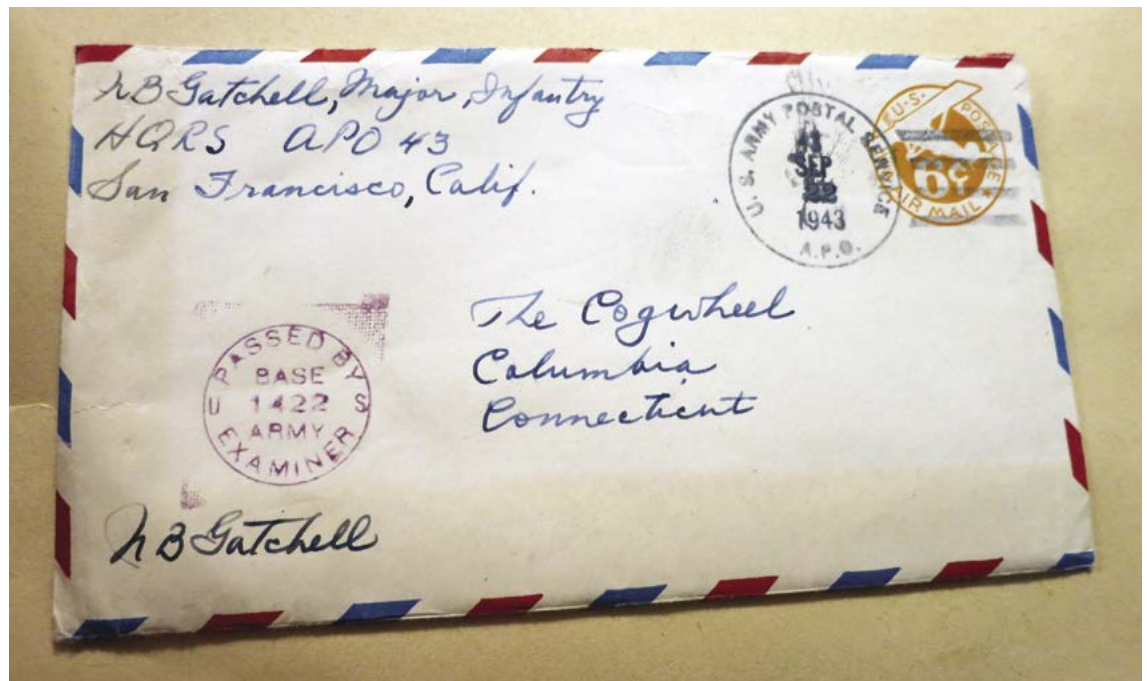 NB Gatchell, Major, Infantry
HQRS APO 43
San Francisco, Calif.
U.S. ARMY POSTAL SERVICE
SEP
1943
A.P.O.
U.S. POSTAGE
6¢
AIR MAIL
The Cogwheel
Columbia
Connecticut
PASSED BY
BASE
U 1422 S
ARMY
EXAMINER
NB Gatchell